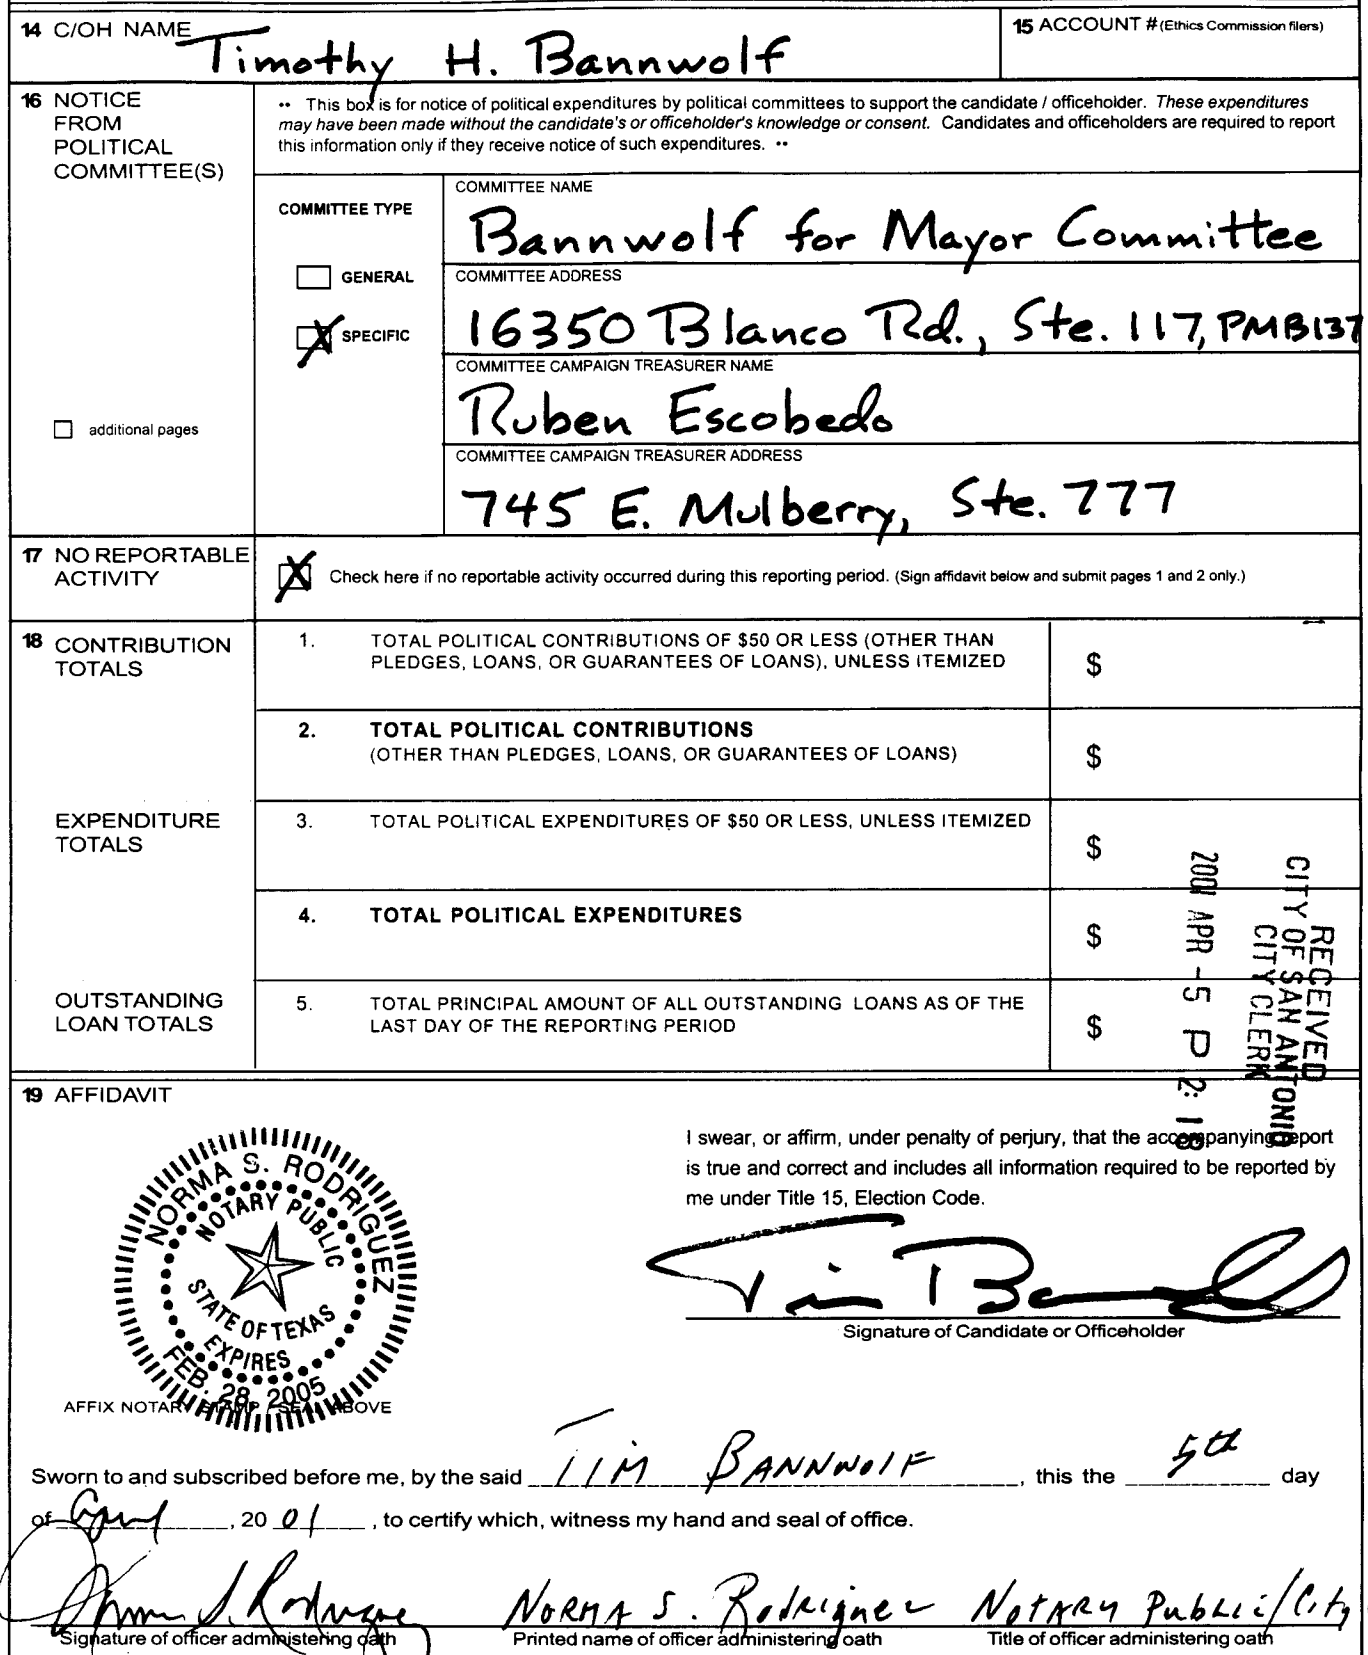 14 C/OH NAME
Timothy H. Bannwolf
15 ACCOUNT # (Ethics Commission filers)
16 NOTICE
FROM
POLITICAL
COMMITTEE(S)
•• This box is for notice of political expenditures by political committees to support the candidate / officeholder. These expenditures
may have been made without the candidate's or officeholder's knowledge or consent. Candidates and officeholders are required to report
this information only if they receive notice of such expenditures. ••
COMMITTEE TYPE
GENERAL
X SPECIFIC
additional pages
COMMITTEE NAME
Bannwolf for Mayor Committee
COMMITTEE ADDRESS
16350 Blanco Rd., Ste. 117, PMB137
COMMITTEE CAMPAIGN TREASURER NAME
Ruben Escobedo
COMMITTEE CAMPAIGN TREASURER ADDRESS
745 E. Mulberry, Ste. 777
17 NO REPORTABLE
ACTIVITY
X Check here if no reportable activity occurred during this reporting period. (Sign affidavit below and submit pages 1 and 2 only.)
18 CONTRIBUTION
TOTALS
1. TOTAL POLITICAL CONTRIBUTIONS OF $50 OR LESS (OTHER THAN
PLEDGES, LOANS, OR GUARANTEES OF LOANS), UNLESS ITEMIZED
$
2. TOTAL POLITICAL CONTRIBUTIONS
(OTHER THAN PLEDGES, LOANS, OR GUARANTEES OF LOANS)
$
EXPENDITURE
TOTALS
3. TOTAL POLITICAL EXPENDITURES OF $50 OR LESS, UNLESS ITEMIZED
$
4. TOTAL POLITICAL EXPENDITURES
$
OUTSTANDING
LOAN TOTALS
5. TOTAL PRINCIPAL AMOUNT OF ALL OUTSTANDING LOANS AS OF THE
LAST DAY OF THE REPORTING PERIOD
$
RECEIVED
CITY OF SAN ANTONIO
CITY CLERK
2001 APR -5 P 2: 18
19 AFFIDAVIT
I swear, or affirm, under penalty of perjury, that the accompanying report
is true and correct and includes all information required to be reported by
me under Title 15, Election Code.
NORMA S. RODRIGUEZ
NOTARY PUBLIC
STATE OF TEXAS
EXPIRES
FEB. 28, 2005
Tim Bannwolf
Signature of Candidate or Officeholder
AFFIX NOTARY STAMP / SEAL ABOVE
Sworn to and subscribed before me, by the said TIM BANNWOLF, this the 5th day
of April, 20 01, to certify which, witness my hand and seal of office.
Norma S. Rodriguez NORMA S. Rodriguez NOTARY Public/City
Signature of officer administering oath Printed name of officer administering oath Title of officer administering oath